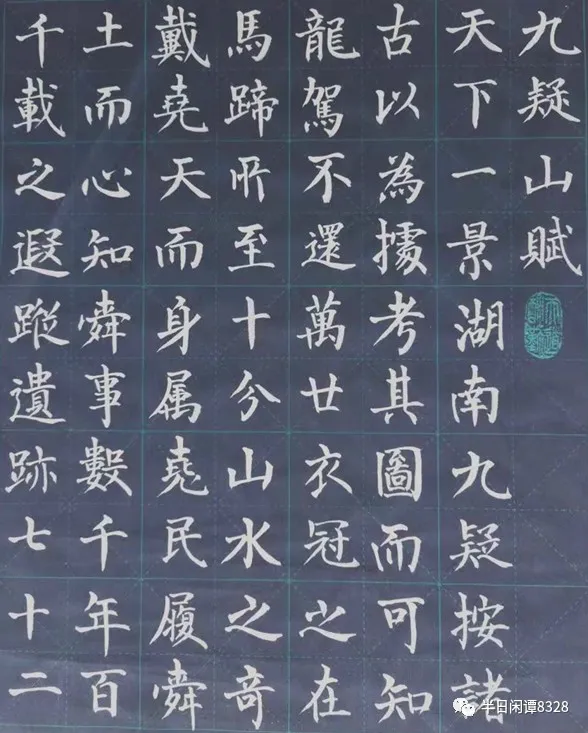 九疑山賦
天下一景湖南九疑按諸
古以為據考其圖而可知
龍駕不還萬世衣冠之在
馬蹄所至十分山水之奇
戴堯天而身属堯民履舜
土而心知舜事數千年百
千載之遐蹤遺跡七十二
半日闲谭8328